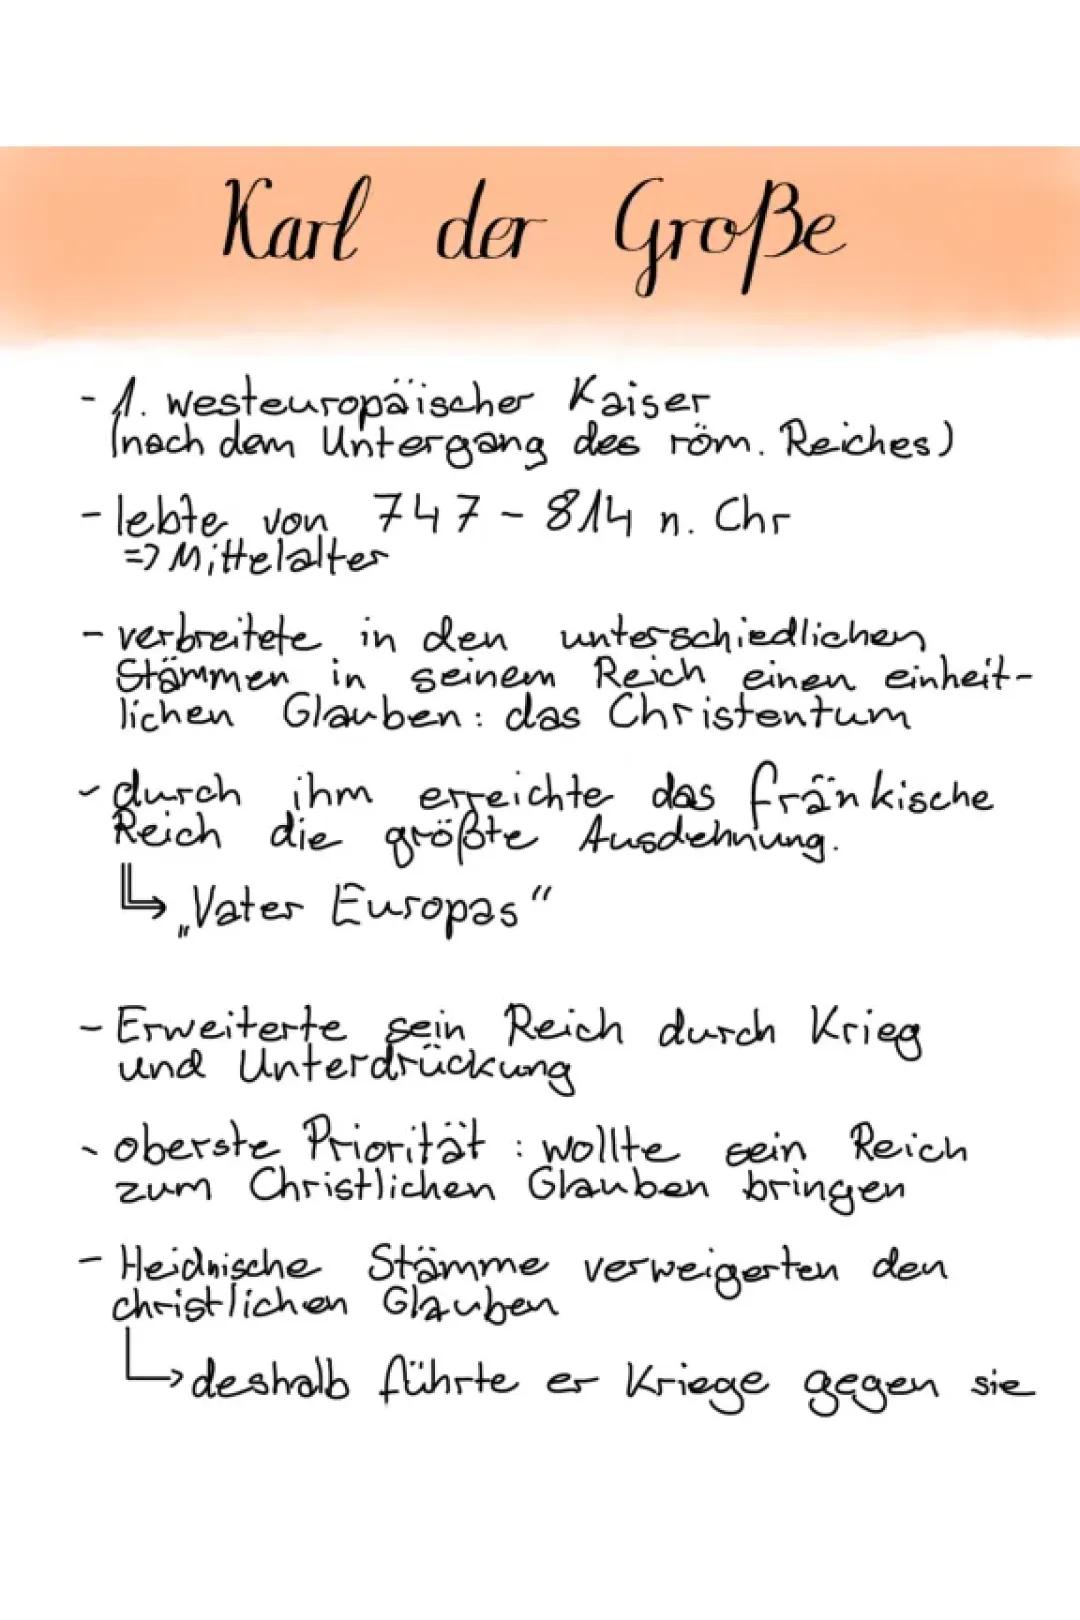 Karl der Große
- 1. westeuropäischer Kaiser
(nach dem Untergang des röm. Reiches)
- lebte von 747 - 814 n. Chr
=> Mittelalter
- verbreitete in den unterschiedlichen
Stämmen in seinem Reich einen einheit-
lichen Glauben: das Christentum
- durch ihm erreichte das fränkische
Reich die größte Ausdehnung.
↳ „Vater Europas“
- Erweiterte sein Reich durch Krieg
und Unterdrückung
- oberste Priorität : wollte sein Reich
zum Christlichen Glauben bringen
- Heidnische Stämme verweigerten den
christlichen Glauben
↳ deshalb führte er Kriege gegen sie